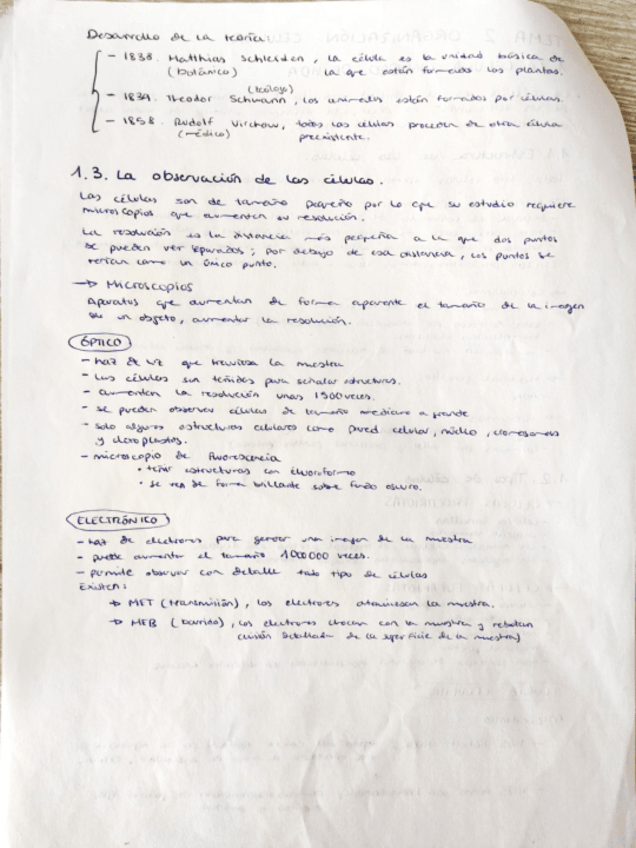 Desarrollo de la teoría:
- 1838. Matthias Schleiden, la célula es la unidad básica de
(botánico) la que están formadas las plantas.
(zoólogo)
- 1839. Theodor Schwann, los animales están formados por células.
- 1858. Rudolf Virchow, todas las células proceden de otra célula
(médico) preexistente.
1.3. La observación de las células.
Las células son de tamaño pequeño por lo que su estudio requiere
microscopios que aumenten su resolución.
La resolución es la distancia más pequeña a la que dos puntos
se pueden ver separados; por debajo de esa distancia, los puntos se
verían como un único punto.
→ Microscopios
Aparatos que aumentan de forma aparente el tamaño de la imagen
de un objeto, aumentar la resolución.
ÓPTICO
- haz de luz que traviesa la muestra
- las células son teñidas para señalar estructuras.
- aumentan la resolución unas 1500 veces.
- se pueden observar células de tamaño mediano a grande
- solo algunas estructuras celulares como pared celular, núcleo, cromosomas
y cloroplastos.
- microscopio de fluorescencia
• teñir estructuras con fluoroformo
• se ven de forma brillante sobre fondo oscuro.
ELECTRÓNICO
- haz de electrones para generar una imagen de la muestra
- puede aumentar el tamaño 1000000 veces.
- permite observar con detalle todo tipo de células
Existen:
→ MET (transmisión), los electrones atraviesan la muestra.
→ MEB (barrido), los electrones chocan con la muestra y rebotan
(visión detallada de la superficie de la muestra)